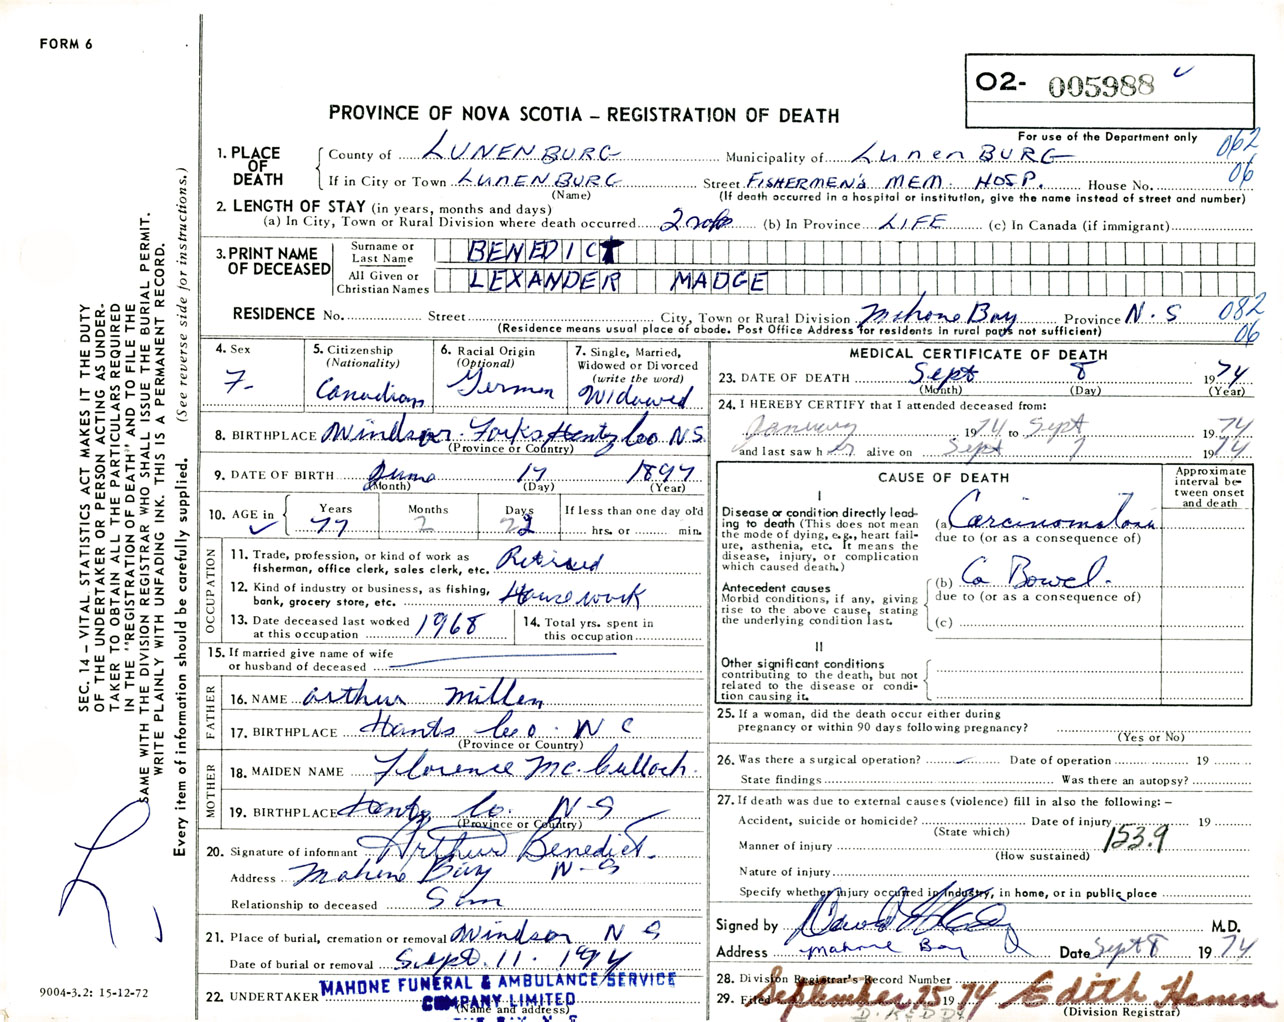 FORM 6
O2- 005988
PROVINCE OF NOVA SCOTIA – REGISTRATION OF DEATH
For use of the Department only
062
06
1. PLACE OF DEATH
County of LUNENBURG Municipality of LUNENBURG
If in City or Town LUNENBURG Street FISHERMEN'S MEM. HOSP. House No.
(Name) (If death occurred in a hospital or institution, give the name instead of street and number)
2. LENGTH OF STAY (in years, months and days)
(a) In City, Town or Rural Division where death occurred (b) In Province LIFE (c) In Canada (if immigrant)
3. PRINT NAME OF DECEASED
Surname or Last Name BENEDICT
All Given or Christian Names LEXANDER MADGE
RESIDENCE No. Street City, Town or Rural Division Mahone Bay Province N.S 082
06
(Residence means usual place of abode. Post Office Address for residents in rural parts not sufficient)
4. Sex
F.
5. Citizenship
(Nationality)
Canadian
6. Racial Origin
(Optional)
German
7. Single, Married, Widowed or Divorced
(write the word)
Widowed
8. BIRTHPLACE Windsor Forks Hants Co N.S.
(Province or Country)
9. DATE OF BIRTH June 17 1897
(Month) (Day) (Year)
10. AGE in
Years Months Days If less than one day old
77 2 22 hrs. or min.
OCCUPATION
11. Trade, profession, or kind of work as fisherman, office clerk, sales clerk, etc. Retired
12. Kind of industry or business, as fishing, bank, grocery store, etc. Housework
13. Date deceased last worked at this occupation 1968
14. Total yrs. spent in this occupation
15. If married give name of wife or husband of deceased
FATHER
16. NAME Arthur Millen
17. BIRTHPLACE Hants Co. N C
(Province or Country)
MOTHER
18. MAIDEN NAME Florence McCulloch.
19. BIRTHPLACE Hants Co. N-S
(Province or Country)
20. Signature of informant Arthur Benedict.
Address Mahone Bay N-S
Relationship to deceased Son
21. Place of burial, cremation or removal Windsor N S
Date of burial or removal Sept. 11. 1974
22. UNDERTAKER MAHONE FUNERAL & AMBULANCE SERVICE
COMPANY LIMITED
(Name and address)
MEDICAL CERTIFICATE OF DEATH
23. DATE OF DEATH Sept 8 1974
(Month) (Day) (Year)
24. I HEREBY CERTIFY that I attended deceased from:
January 1974 to Sept 1974
and last saw her alive on Sept 7 1974
CAUSE OF DEATH
Approximate interval between onset and death
I
Disease or condition directly leading to death (This does not mean the mode of dying, e.g., heart failure, asthenia, etc. It means the disease, injury, or complication which caused death.)
(a) Carcinomatosis
due to (or as a consequence of)
Antecedent causes
Morbid conditions, if any, giving rise to the above cause, stating the underlying condition last.
(b) Ca Bowel.
due to (or as a consequence of)
(c)
II
Other significant conditions contributing to the death, but not related to the disease or condition causing it.
25. If a woman, did the death occur either during pregnancy or within 90 days following pregnancy?
(Yes or No)
26. Was there a surgical operation? Date of operation 19
State findings Was there an autopsy?
27. If death was due to external causes (violence) fill in also the following: –
Accident, suicide or homicide? Date of injury 19
(State which)
153.9
Manner of injury
(How sustained)
Nature of injury
Specify whether injury occurred in industry, in home, or in public place
Signed by M.D.
Address Mahone Bay Date Sept 8 1974
28. Division Registrar's Record Number
29. Filed September 25 1974 Edith
D. KEDDY (Division Registrar)
SEC. 14 – VITAL STATISTICS ACT MAKES IT THE DUTY
OF THE UNDERTAKER OR PERSON ACTING AS UNDER-
TAKER TO OBTAIN ALL THE PARTICULARS REQUIRED
IN THE "REGISTRATION OF DEATH" AND TO FILE THE
SAME WITH THE DIVISION REGISTRAR WHO SHALL ISSUE THE BURIAL PERMIT.
WRITE PLAINLY WITH UNFADING INK. THIS IS A PERMANENT RECORD.
Every item of information should be carefully supplied. (See reverse side for instructions.)
9004-3.2: 15-12-72